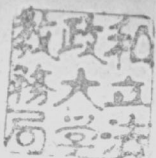 私立法
政大学
教務局